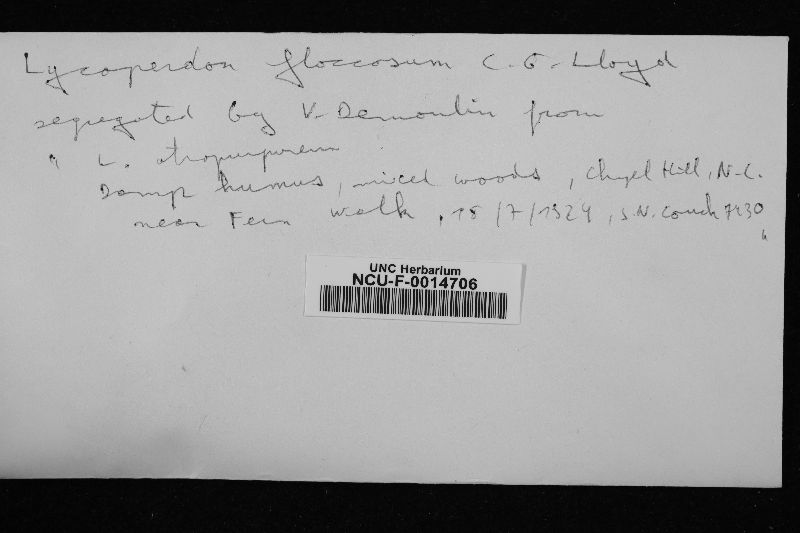 Lycoperdon floccosum C. G. Lloyd
segregated by V. Demoulin from
" L. atropurpureum
Damp humus, mixed woods, Chapel Hill, N-C.
near Fern walk, 18/7/1924, J.N. Couch 7430
"
UNC Herbarium
NCU-F-0014706